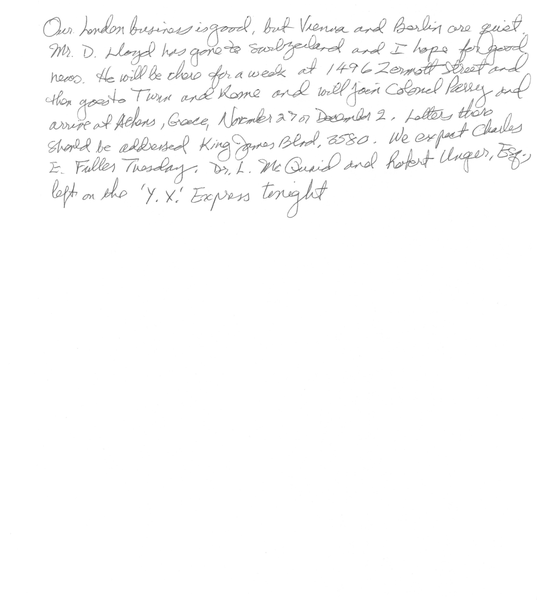 Our London business is good, but Vienna and Berlin are quiet.
Mr. D. Lloyd has gone to Switzerland and I hope for good
news. He will be there for a week at 1496 Zermott Street and
then goes to Turin and Rome and will join Colonel Perry and
arrive at Athens, Greece, November 27 or December 2. Letters there
should be addressed King James Blvd, 3580. We expect Charles
E. Fuller Tuesday. Dr. L. McQuaid and Robert Unger, Esq.,
left on the 'Y.X.' Express tonight